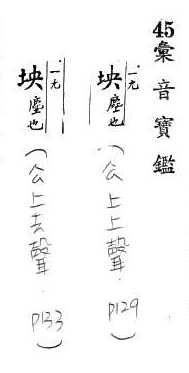 45彙音寶鑑
坱 ㄧㄤ 塵也
(公上上聲 P129)
坱 ㄧㄤ 塵也
(公上去聲 P133)